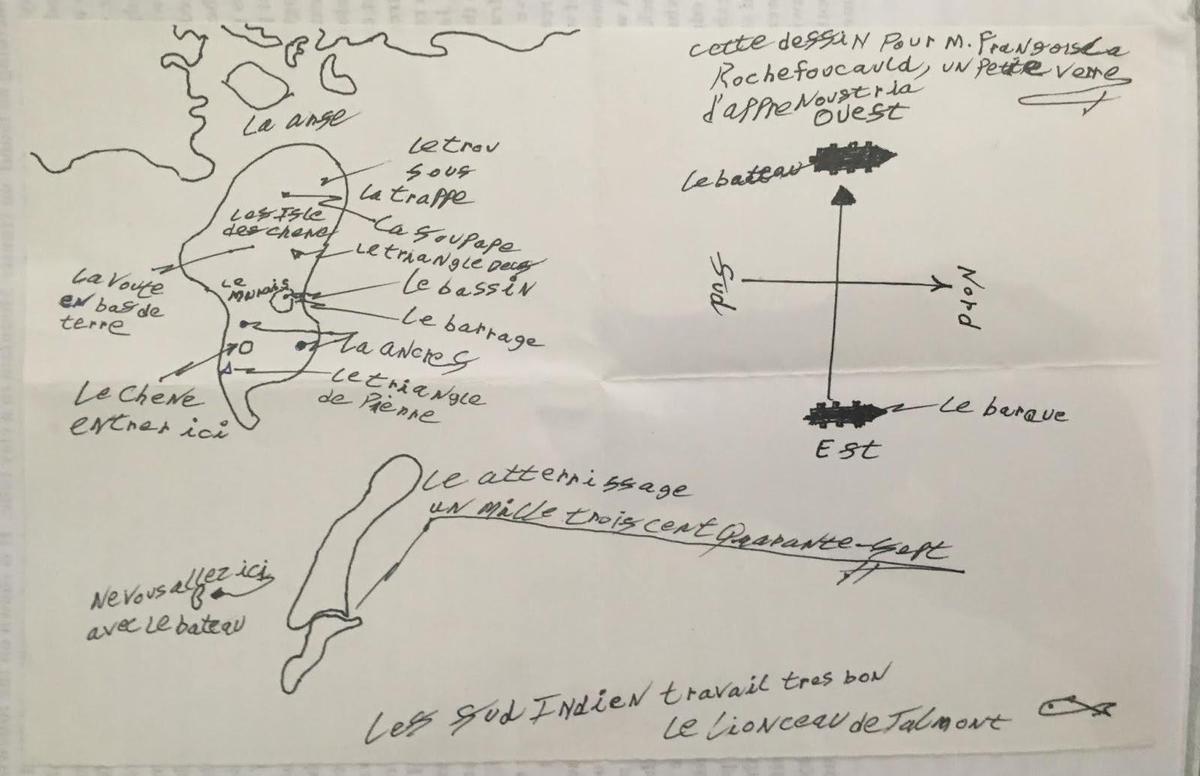 cette dessin pour M. Françoise La
Rochefoucauld, un petite verre
d'appre Noustria
Ouest
Le batteau
Sud
Nord
Le barque
Est
La anse
Le trou
sous
La trappe
La soupape
Les Isle
des chene
Le triangle
Le bassin
Le barrage
La voute
en bas de
terre
Le
La ancres
Le triangle
de Pierre
Le Chene
entrer ici
Le atterrissage
un mille trois cent Quarante-Sept
Ne vous allez ici
avec Le bateau
Les Sud Indien travail tres bon
Le Lionceau de Talmont